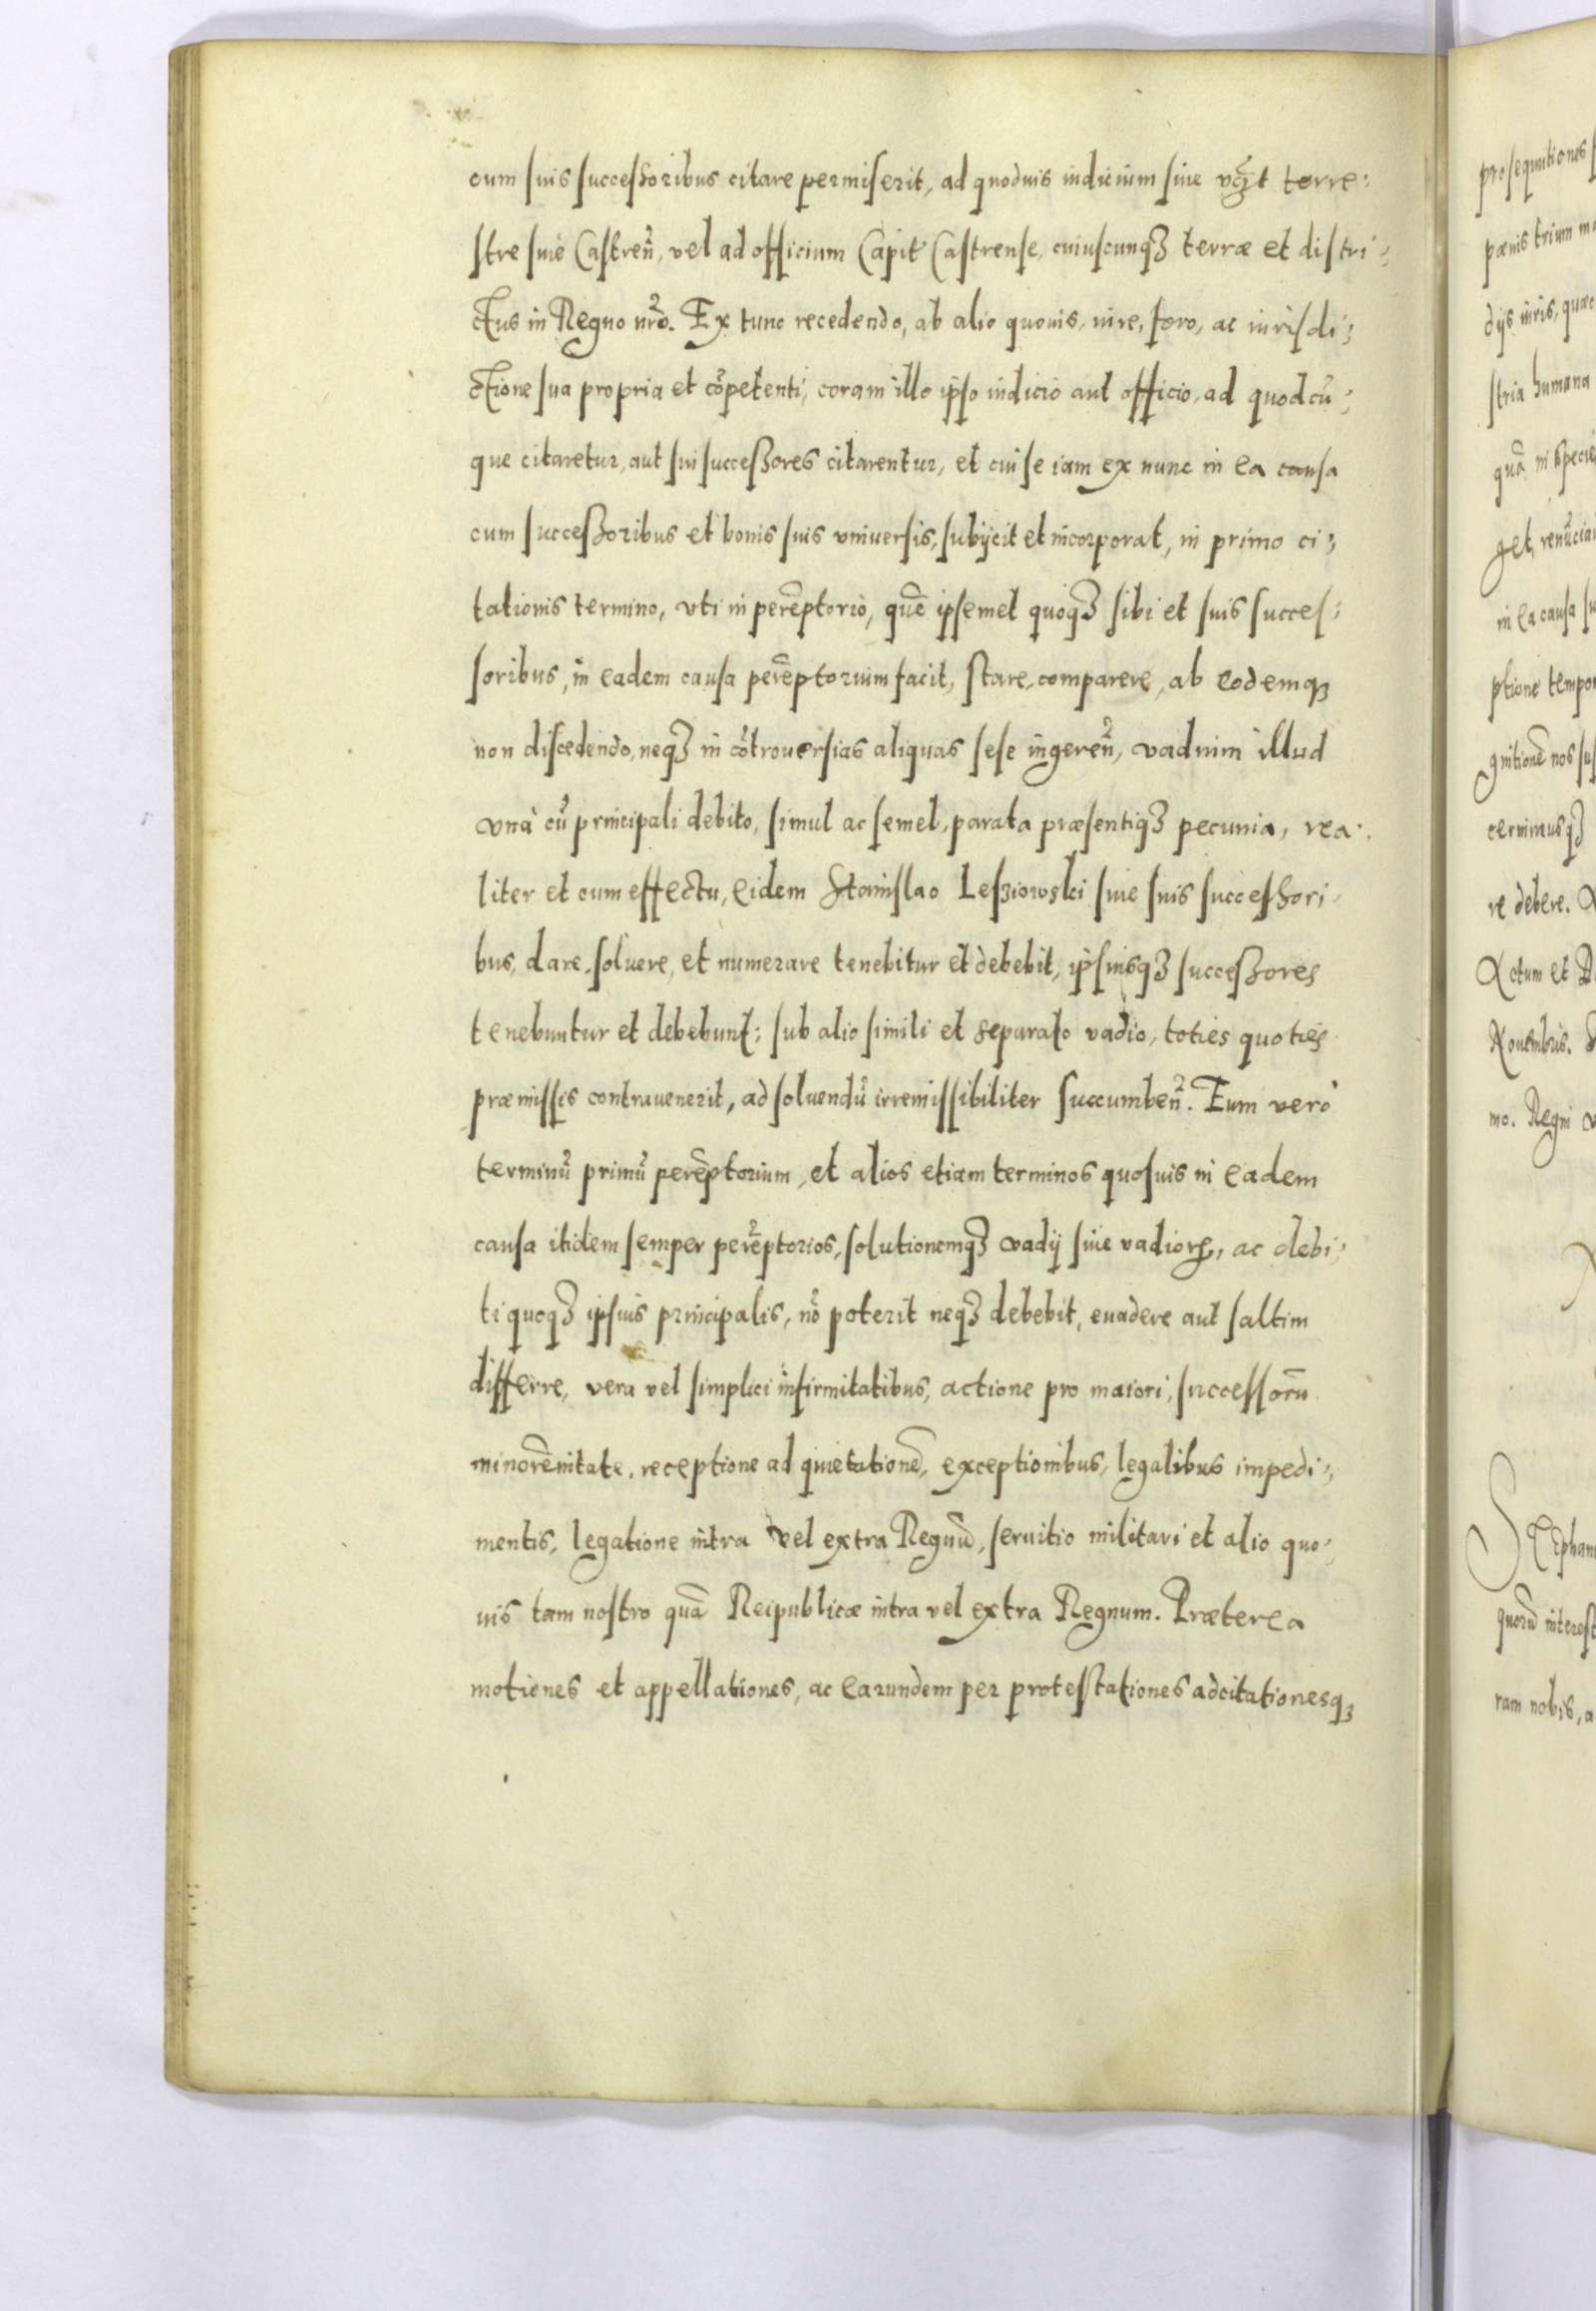 cum suis successoribus citare permiserit, ad quoduis iudicium siue terre:
stre siue Castreñ, vel ad officium Capit Castrense, cuiuscunqꝫ terræ et distri:
ctus in Regno nr̃o. Ex tunc recedendo, ab alio quouis, iure, foro, ac iurisdi:
ctione sua propria et cõpetenti, coram illo ipso iudicio aut officio, ad quodcũ:
que citaretur, aut sui successores citarentur, et cui se iam ex nunc in ea causa
cum successoribus et bonis suis vniuersis, subijcit et incorporat, in primo ci:
tationis termino, vti in perẽptorio, quẽ ipsemet quoqꝫ sibi et suis succes:
soribus, in eadem causa perẽptorium facit, stare, comparere, ab eodemqꝫ
non discedendo, neqꝫ in cõtrouersias aliquas sese ingereñ, vadium illud
vnà cũ principali debito, simul ac semel, parata præsentiqꝫ pecunia, rea:
liter et cum effectu, eidem Stanislao Lesziowski siue suis successori:
bus, dare, soluere, et numerare tenebitur et debebit, ipsiusqꝫ successores
tenebuntur et debebunt: sub alio simili et separato vadio, toties quoties
præmissis contrauenerit, ad soluendũ irremissibiliter succumbeñ. Eum verò
terminũ primũ perẽptorium, et alios etiam terminos quosuis in eadem
causa itidem semper perẽptorios, solutionemqꝫ vadij siue vadiorꝝ, ac debi:
ti quoqꝫ ipsius principalis, nõ poterit neqꝫ debebit, euadere aut saltim
differre, vera vel simplici infirmitatibus, actione pro maiori, successorũ
minorẽnitate, receptione ad quietationẽ, exceptionibus, legalibus impedi:
mentis, legatione intra vel extra Regnũ, seruitio militari et alio quo:
uis tam nostro quã Reipublicæ intra vel extra Regnum. Præterea
motiones et appellationes, ac earundem per protestationes adcitationesqꝫ